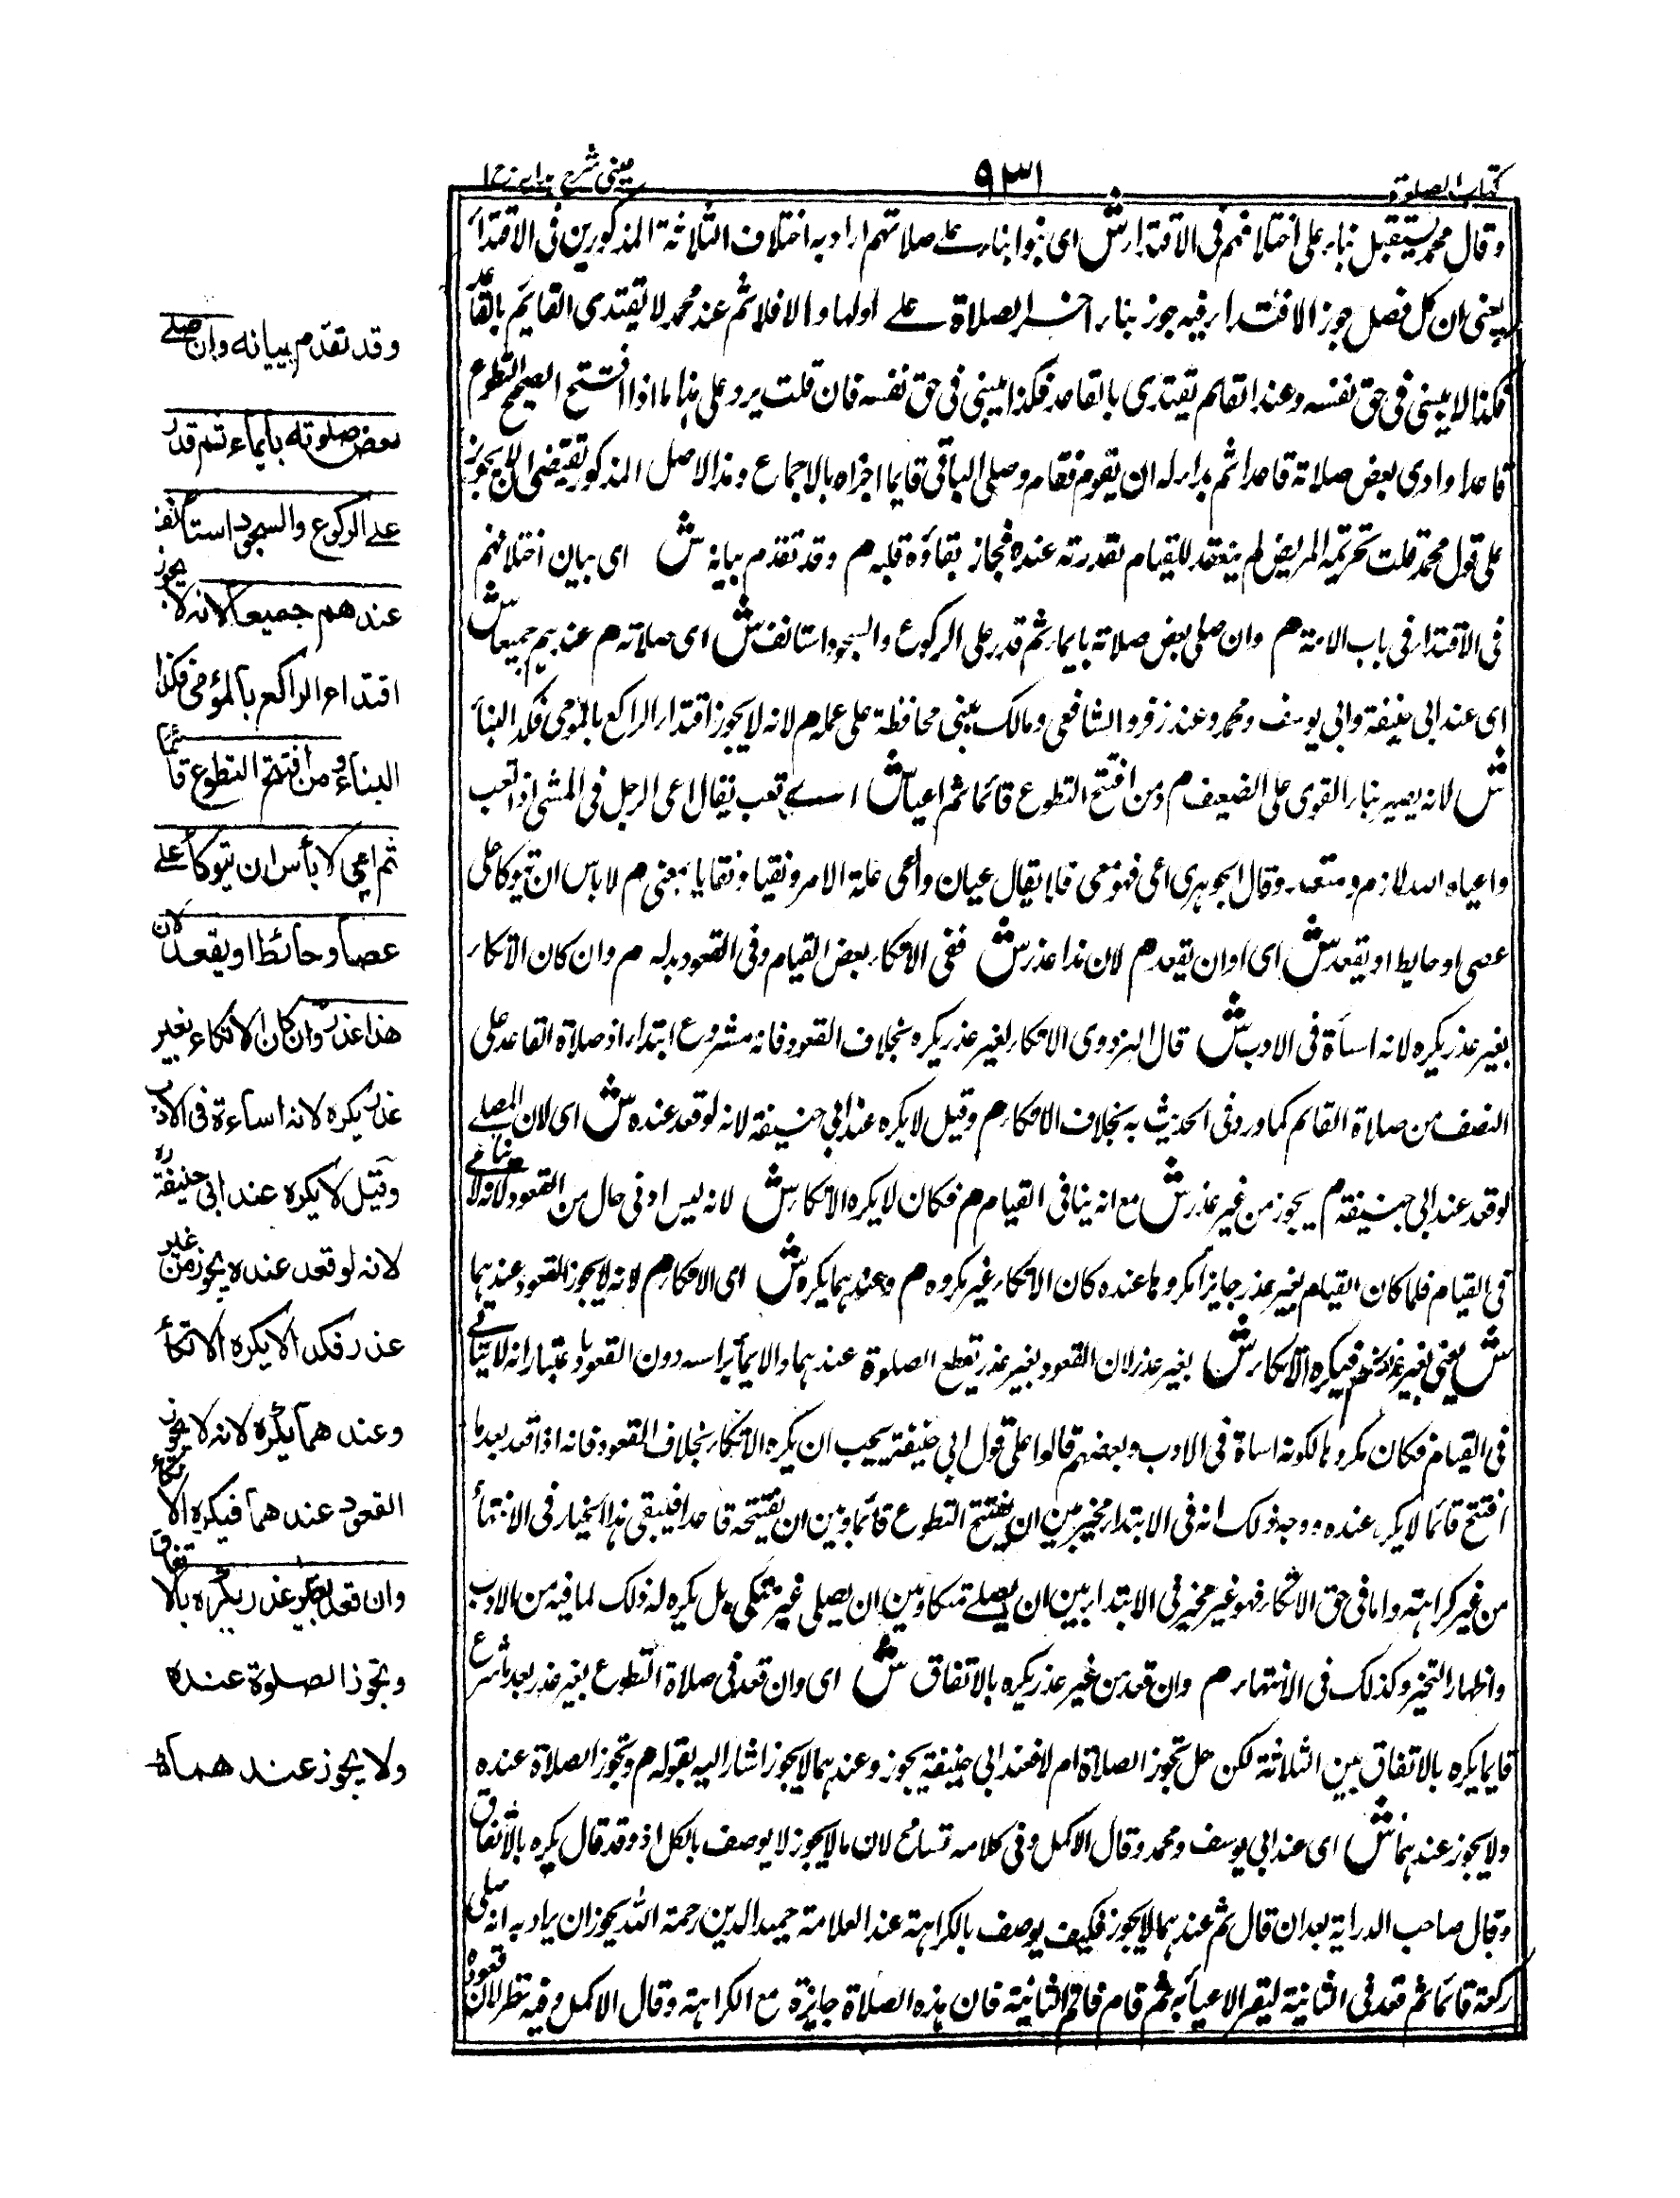 كتاب الصلوة
٩٣١
عینی شرح ہدایہ ج١
وقال محمد يستقبل بناء على اختلافهم فى الاقتداء ش اى بنوا بناء على صلاتهم اراد به اختلاف الثلاثة المذكورين فى الاقتداء
يعنى ان كل فصل جوز الاقتداء فيه جوز بناء اخر الصلاة على اولها والا فلا ثم عند محمد لا يقتدى القايم بالقاعد
فكذا لا يبنى فى حق نفسه وعندا القايم يقتدى بالقاعد فكذا يبنى فى حق نفسه فان قلت يرد على هذا ما اذا افتتح الصحيح التطوع
قاعدا وادى بعض صلاته قاعدا ثم بداء له ان يقوم فقام وصلى الباقى قايما اجزاه بالاجماع وهذا الاصل المذكور يقتضى ان لا يجوز
على قول محمد قلت تحريمة المريض لم ينعقد للقيام لقدرته عنده فجاز بقاؤه قلبه م وقد تقدم بيانه ش اى بيان اختلافهم
فى الاقتداء فى باب الامامة م وان صلى بعض صلاته بايماء ثم قدر على الركوع والسجود استانف ش اى صلاته م عندهم جميعا ش
اى عند ابى حنيفة وابى يوسف ومحمد وعند زفر والشافعى ومالك يبنى محافظة على عمله م لانه لا يجوز اقتداء الراكع بالمومى فكذا البناء
ش لانه يصير بناء القوى على الضعيف م ومن افتتح التطوع قائما ثم اعيا ش اى تعب يقال اعى الرجل فى المشى اذا تعب
واعياه الله لازم ومتعد وقال الجوهرى اعى فهو معى ولا يقال عيان واعى علة الامر وتعيا وتعايا بمعنى م لا باس ان يتوكا على
عصى او حايط او يقعد ش اى او ان يقعد م لان هذا عذر ش ففى الاتكاء بعض القيام وفى القعود بدله م وان كان الاتكاء
بغير عذر يكره لانه اسأة فى الادب ش قال البزدوى الاتكاء لغير عذر يكره بخلاف القعود فانه مشروع ابتداء اذ صلاة القاعد على
النصف من صلاة القايم كما ورد فى الحديث به بخلاف الاتكاء م وقيل لا يكره عند ابى حنيفة لانه لو قعد عنده ش اى لان المصلى
لو قعد عند ابى حنيفة م يجوز من غير عذر ش مع انه ينافى القيام م فكان لا يكره الاتكاء ش لانه ليس ادنى حال من القعود لانه لا ينافى
فى القيام فلما كان القيام بغير عذر جايزا مكروها عنده كان الاتكاء غير مكروه م وعندهما يكره ش اى الاتكاء م لانه لا يجوز القعود عندهما
ش يعنى بغير عذر م فيكره الاتكاء ش بغير عذر لان القعود بغير عذر يقطع الصلوة عندهما والايمأ براسه دون القعود باعتبار انه لا ينافى
فى القيام فكان مكروها لكونه اساة فى الادب وبعضهم قالوا على قول ابى حنيفة يجب ان يكره الاتكاء بخلاف القعود فانه اذا قعد بعد ما
افتتح قائما لا يكره عنده ووجه ذلك انه فى الابتداء مخير بين ان يفتتح التطوع قائما وبين ان يفتتحه قاعدا فيبقى هذا الخيار فى الانتهاء
من غير كراهته واما فى حق الاتكاء فهو غير مخير فى الابتداء بين ان يصلى متكا وبين ان يصلى غير متكى بل يكره له ذلك لما فيه من الادب
واظهار التخير وكذلك فى الانتهاء م وان قعد من غير عذر يكره بالاتفاق ش اى وان قعد فى صلاة التطوع بغير عذر بعد ما شرع
قايما يكره بالاتفاق بين الثلاثة لكن هل تجوز الصلاة ام لا فعند ابى حنيفة يجوز وعندهما لا يجوز اشار اليه بقوله م وتجوز الصلاة عنده
ولا يجوز عندهما ش اى عند ابى يوسف ومحمد وقال الاكمل وفى كلامه تسامح لان ما لا يجوز لا يوصف بالكل اذ وقد قال يكره بالاتفاق
وقال صاحب الدراية بعد ان قال ثم عندهما لا يجوز فكيف يوصف بالكراهة عند العلامة حميد الدين رحمة الله يجوز ان يراد به انه صلى
ركعة قائما ثم قعد فى الثانية ليقر الاعيأ به ثم قام فاتم الثانية فان هذه الصلاة جايزة مع الكراهته وقال الاكمل وفيه نظر لان قعوده
وقد تقدم بيانه وان صلى
بعض صلوته بايماء ثم قدر
على الركوع والسجود استأنف
عندهم جميعا لانه لا يجوز
اقتداء الراكع بالمؤمى فكذا
البناء ومن افتتح التطوع قائما
ثم اعيى لا بأس ان يتوكأ على
عصا وحائط او يقعد لان
هذا عذر وان كان الاتكاء بغير
عذر يكره لانه اساءة فى الادب
وقيل لا يكره عند ابى حنيفة ره
لانه لو قعد عنده يجوز من غير
عذر فكذا لا يكره الاتكأ
وعندهما يكره لانه لا يجوز
القعود عندهما فيكره الاتكاء
وان قعد بغير عذر يكره بالاتفاق
وتجوز الصلوة عنده
ولا يجوز عندهما